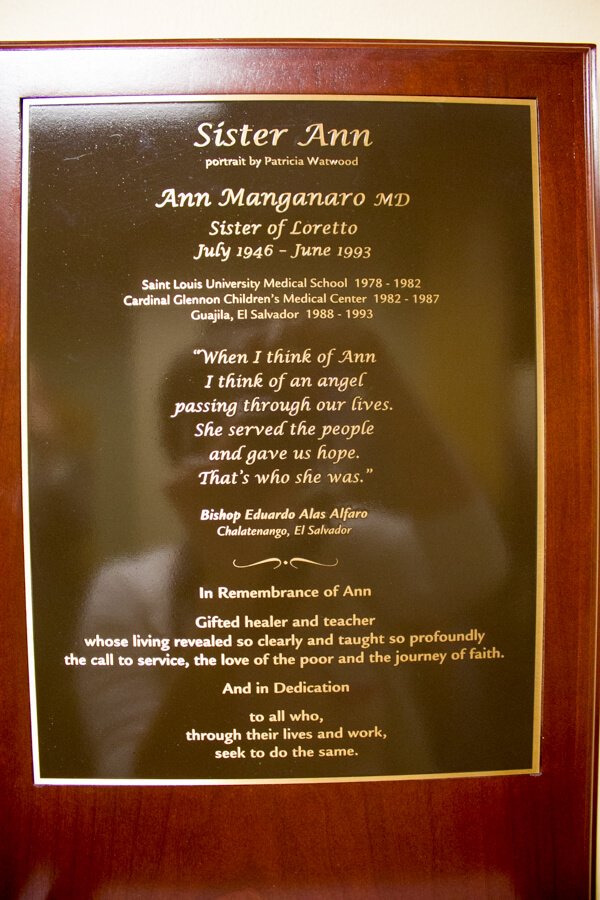 Sister Ann
portrait by Patricia Watwood
Ann Manganaro MD
Sister of Loretto
July 1946 – June 1993
Saint Louis University Medical School 1978 - 1982
Cardinal Glennon Children's Medical Center 1982 - 1987
Guajila, El Salvador 1988 - 1993
"When I think of Ann
I think of an angel
passing through our lives.
She served the people
and gave us hope.
That's who she was."
Bishop Eduardo Alas Alfaro
Chalatenango, El Salvador
In Remembrance of Ann
Gifted healer and teacher
whose living revealed so clearly and taught so profoundly
the call to service, the love of the poor and the journey of faith.
And in Dedication
to all who,
through their lives and work,
seek to do the same.